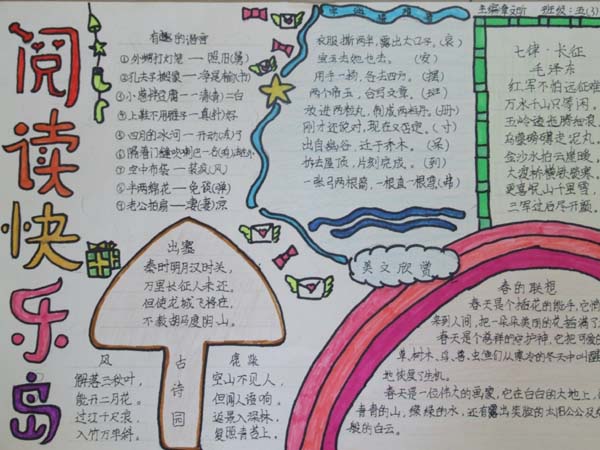 阅读快乐岛
有趣的谐音
①外甥打灯笼——照旧(舅)
②孔夫子搬家——净是输(书)
③小葱拌豆腐——清(青)二白
④上鞋不用锥子——真(针)好
⑤四月的冰河——开动(冻)了
⑥隔着门缝吹喇叭——名(鸣)声在外
⑦空中布袋——装疯(风)
⑧半两棉花——免谈(弹)
⑨老公拍扇——凄(妻)凉
衣服撕两半,露出大口子。(哀)
宝玉去她也去。(安)
用手一趟,各去四方。(摆)
两个帝王,合写文章。(班)
放进两粒丸,制成两粒丹。
刚才还说对,现在又
出自幽谷,迁于乔木。(呆)
拆去屋顶,片刻完成。(到)
一张弓两根箭,一根直一根弯
主编:章文昕 班级:五(3)
七律·长征
毛泽东
红军不怕远征难
万水千山只等闲。
五岭逶迤腾细浪
乌蒙磅礴走泥丸。
金沙水拍云崖暖
大渡桥横铁索寒。
更喜岷山千里雪
三军过后尽开颜。
出塞
秦时明月汉时关,
万里长征人未还。
但使龙城飞将在,
不教胡马度阴山。
古诗园
风
解落三秋叶,
能开二月花。
过江千尺浪,
入竹万竿斜。
鹿柴
空山不见人,
但闻人语响,
返景入深林,
复照青苔上。
美文欣赏
春的联想
春天是个插花的能手,它
来到人间,把一朵朵美丽的花插满了
春天是个慈祥的守护神,它把可爱的
草、树木、鸟、兽、虫、鱼们从寒冷的冬天中叫醒
地恢复了生机。
春天是一位伟大的画家,它在白白的大地上,
青青的山,绿绿的水,还有露出笑脸的太阳公公及
般的白云。